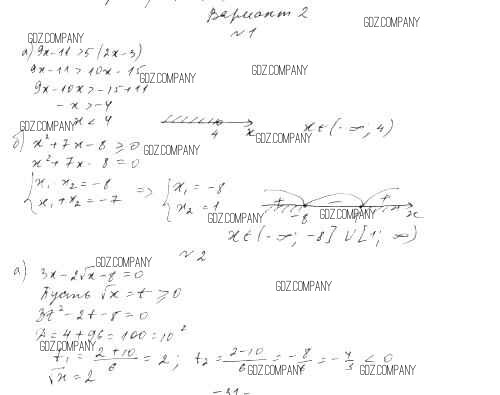 Вариант 2
GDZ.COMPANY
№1
GDZ.COMPANY
а) 9x-11 > 5(2x-3)
9x-11 > 10x-15
GDZ.COMPANY
GDZ.COMPANY
9x-10x > -15+11
-x > -4
x < 4
4
x
x ∈ (-∞; 4)
GDZ.COMPANY
GDZ.COMPANY
б) x²+7x-8 ≥ 0
GDZ.COMPANY
x²+7x-8 = 0
{x₁ x₂ = -8
{x₁+x₂ = -7
=>
{x₁ = -8
{x₂ = 1
+ - +
-8 1 x
GDZ.COMPANY
GDZ.COMPANY
x ∈ (-∞; -8] ∪ [1; ∞)
№2
GDZ.COMPANY
а) 3x-2√x-8 = 0
GDZ.COMPANY
Пусть √x = t ≥ 0
3t²-2t-8 = 0
D = 4+96 = 100 = 10²
GDZ.COMPANY
t₁ = (2+10)/6 = 2; t₂ = (2-10)/6 = -8/6 = -4/3 < 0
GDZ.COMPANY
GDZ.COMPANY
√x = 2
-31-